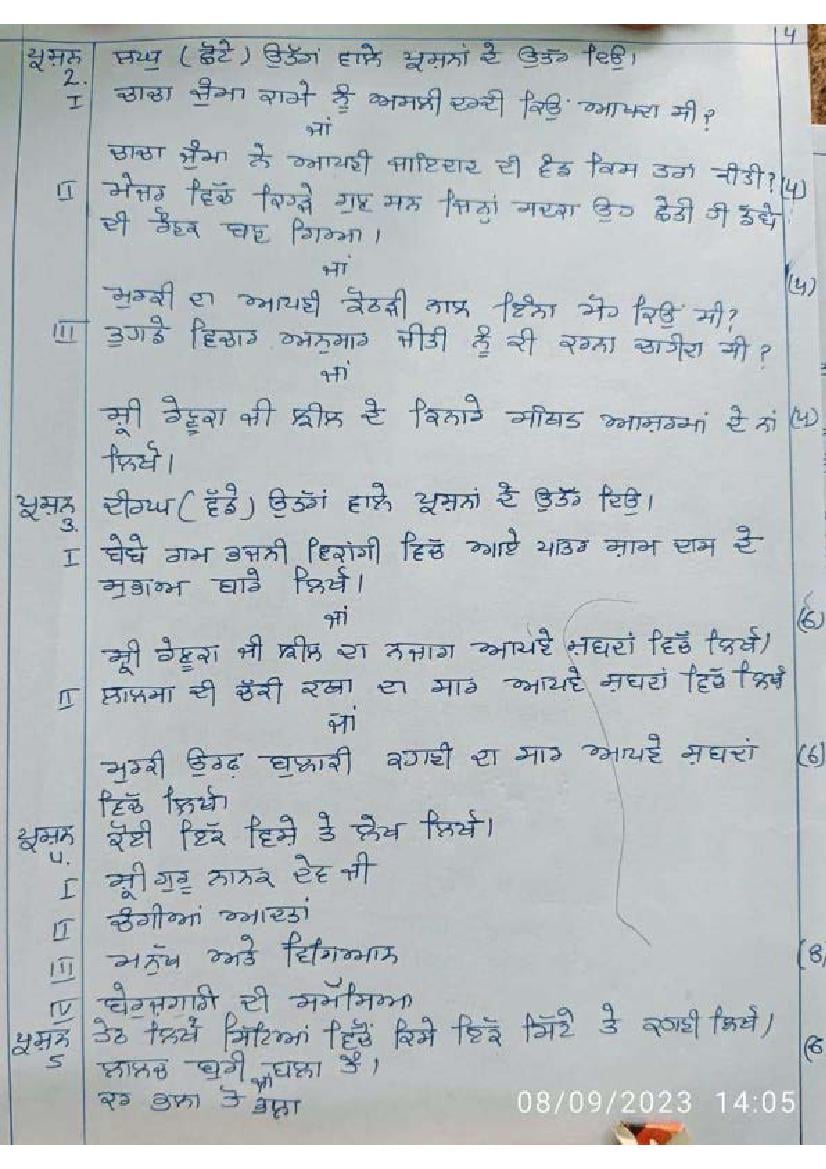 4
ਪ੍ਰਸ਼ਨ 2. ਲਘੂ (ਛੋਟੇ) ਉੱਤਰਾਂ ਵਾਲੇ ਪ੍ਰਸ਼ਨਾਂ ਦੇ ਉੱਤਰ ਦਿਉ।
I ਚਾਚਾ ਜੈਮਾ ਰਾਮੇ ਨੂੰ ਅਸਲੀ ਦਰਦੀ ਕਿਉਂ ਆਖਦਾ ਸੀ?
ਜਾਂ
ਚਾਚਾ ਜੈਮਾ ਨੇ ਆਪਣੀ ਜਾਇਦਾਦ ਦੀ ਵੰਡ ਕਿਸ ਤਰਾਂ ਕੀਤੀ? (4)
II ਮੇਜਰ ਵਿੱਚ ਕਿਹੜੇ ਗੁਣ ਸਨ ਜਿਨ੍ਹਾਂ ਸਦਕਾ ਉਹ ਛੇਤੀ ਹੀ ਡੱਬੇ
ਦੀ ਰੌਣਕ ਬਣ ਗਿਆ।
ਜਾਂ
(4)
ਸੁਰਕੀ ਦਾ ਆਪਣੀ ਕੋਠੜੀ ਨਾਲ ਇੰਨਾ ਮੋਹ ਕਿਉਂ ਸੀ?
III ਤੁਹਾਡੇ ਵਿਚਾਰ ਅਨੁਸਾਰ ਜੀਤੀ ਨੂੰ ਕੀ ਕਰਨਾ ਚਾਹੀਦਾ ਸੀ?
ਜਾਂ
ਸ਼੍ਰੀ ਰੇਣੂਕਾ ਜੀ ਝੀਲ ਦੇ ਕਿਨਾਰੇ ਸਥਿਤ ਆਸ਼ਰਮਾਂ ਦੇ ਨਾਂ (4)
ਲਿਖੋ।
ਪ੍ਰਸ਼ਨ 3. ਦੀਰਘ (ਵੱਡੇ) ਉੱਤਰਾਂ ਵਾਲੇ ਪ੍ਰਸ਼ਨਾਂ ਦੇ ਉੱਤਰ ਦਿਉ।
I ਬੇਬੇ ਰਾਮ ਭਜਨੀ ਇਕਾਂਗੀ ਵਿੱਚ ਆਏ ਪਾਤਰ ਸ਼ਾਮ ਦਾਸ ਦੇ
ਸੁਭਾਅ ਬਾਰੇ ਲਿਖੋ।
ਜਾਂ
(6)
ਸ਼੍ਰੀ ਰੇਣੂਕਾ ਜੀ ਝੀਲ ਦਾ ਨਜ਼ਾਰਾ ਆਪਣੇ ਸ਼ਬਦਾਂ ਵਿੱਚ ਲਿਖੋ।
II ਲਾਲਸਾ ਦੀ ਚੱਕੀ ਕਥਾ ਦਾ ਸਾਰ ਆਪਣੇ ਸ਼ਬਦਾਂ ਵਿੱਚ ਲਿਖੋ
ਜਾਂ
ਸੁਰਕੀ ਉਰਫ਼ ਬੁਲਾਰੀ ਕਹਾਣੀ ਦਾ ਸਾਰ ਆਪਣੇ ਸ਼ਬਦਾਂ (6)
ਵਿੱਚ ਲਿਖੋ।
ਪ੍ਰਸ਼ਨ 4. ਕੋਈ ਇੱਕ ਵਿਸ਼ੇ ਤੇ ਲੇਖ ਲਿਖੋ।
I ਸ਼੍ਰੀ ਗੁਰੂ ਨਾਨਕ ਦੇਵ ਜੀ
II ਚੰਗੀਆਂ ਆਦਤਾਂ
III ਮਨੁੱਖ ਅਤੇ ਵਿਗਿਆਨ (8)
IV ਬੇਰੁਜ਼ਗਾਰੀ ਦੀ ਸਮੱਸਿਆ
ਪ੍ਰਸ਼ਨ 5 ਹੇਠ ਲਿਖੇ ਸਿੱਟਿਆਂ ਵਿੱਚੋਂ ਕਿਸੇ ਇੱਕ ਸਿੱਟੇ ਤੇ ਕਹਾਣੀ ਲਿਖੋ।
ਲਾਲਚ ਬੁਰੀ ਬਲਾ ਹੈ।
ਜਾਂ
ਕਰ ਭਲਾ ਹੋ ਭਲਾ
08/09/2023 14:05